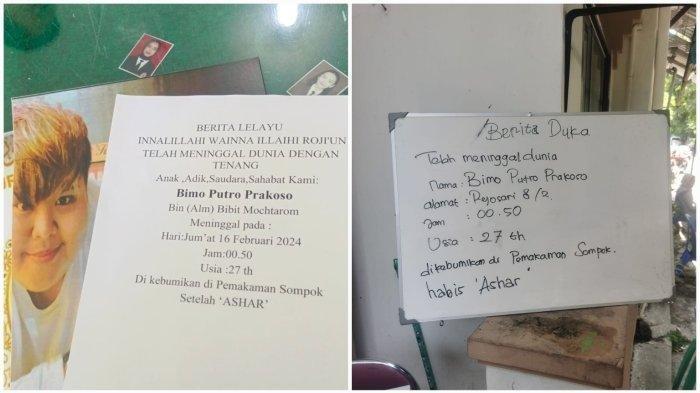 BERITA LELAYU
INNALILLAHI WAINNA ILLAIHI ROJI'UN
TELAH MENINGGAL DUNIA DENGAN
TENANG
Anak ,Adik,Saudara,Sahabat Kami:
Bimo Putro Prakoso
Bin (Alm) Bibit Mochtarom
Meninggal pada :
Hari:Jum'at 16 Februari 2024
Jam:00.50
Usia :27 th
Di kebumikan di Pemakaman Sompok
Setelah 'ASHAR'
Berita Duka
Telah meninggal dunia
Nama : Bimo Putro Prakoso
alamat : Rejosari 8/2.
Jam : 00.50
Usia : 27 th
dikebumikan di Pemakaman Sompok.
habis 'Ashar'